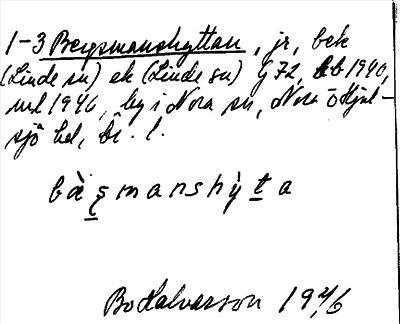 1-3 Bergsmanshyttan, jr, bek
(Linde sn) ek (Linde sn) G 72, kb 1940,
uel 1946, by i Nora sn, Nora o Hjul-
sjö hd, Ör. l.
bàşmanshỳṯa
Bo Halvarson 1946